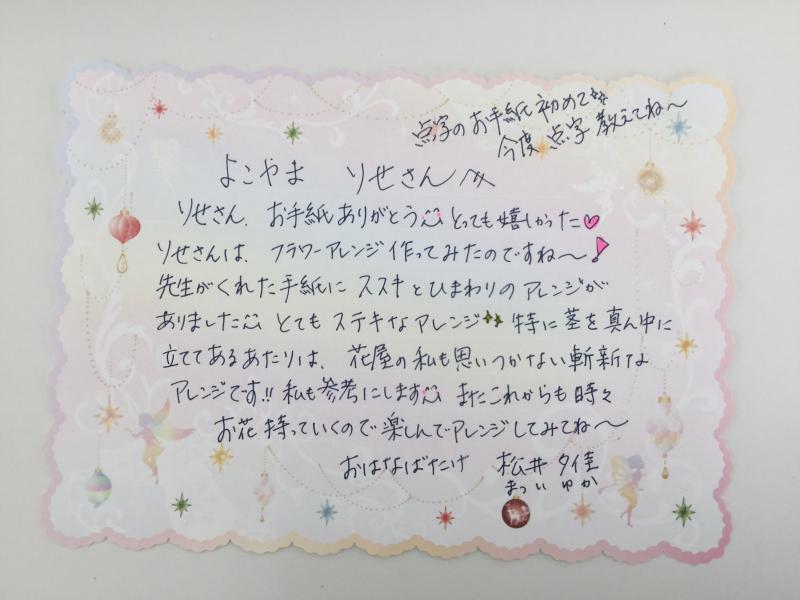 点字のお手紙初めて
今度 点字 教えてね～
よこやま りせさんへ
りせさん、お手紙ありがとう とっても嬉しかった♡
りせさんは、フラワーアレンジ作ってみたのですね～!
先生がくれた手紙に ススキとひまわりのアレンジが
ありました とても ステキなアレンジ 特に茎を真ん中に
立ててあるあたりは、花屋の私も思いつかない斬新な
アレンジです!! 私も参考にします またこれからも時々
お花 持っていくので楽しんでアレンジしてみてね～
おはなばたけ 松井 夕佳
まつい ゆか